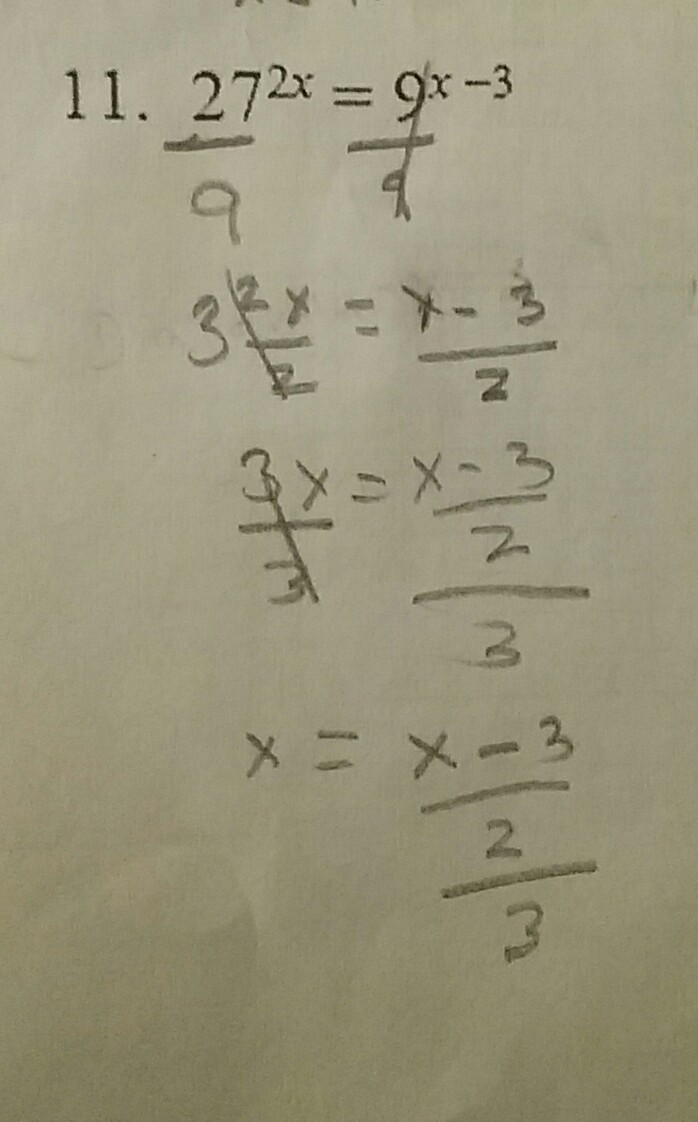 11. 27^{2x} = 9^{x-3}
9 9
3 2x/2 = x - 3/2
3x/3 = x - 3/2/3
x = x - 3/2/3